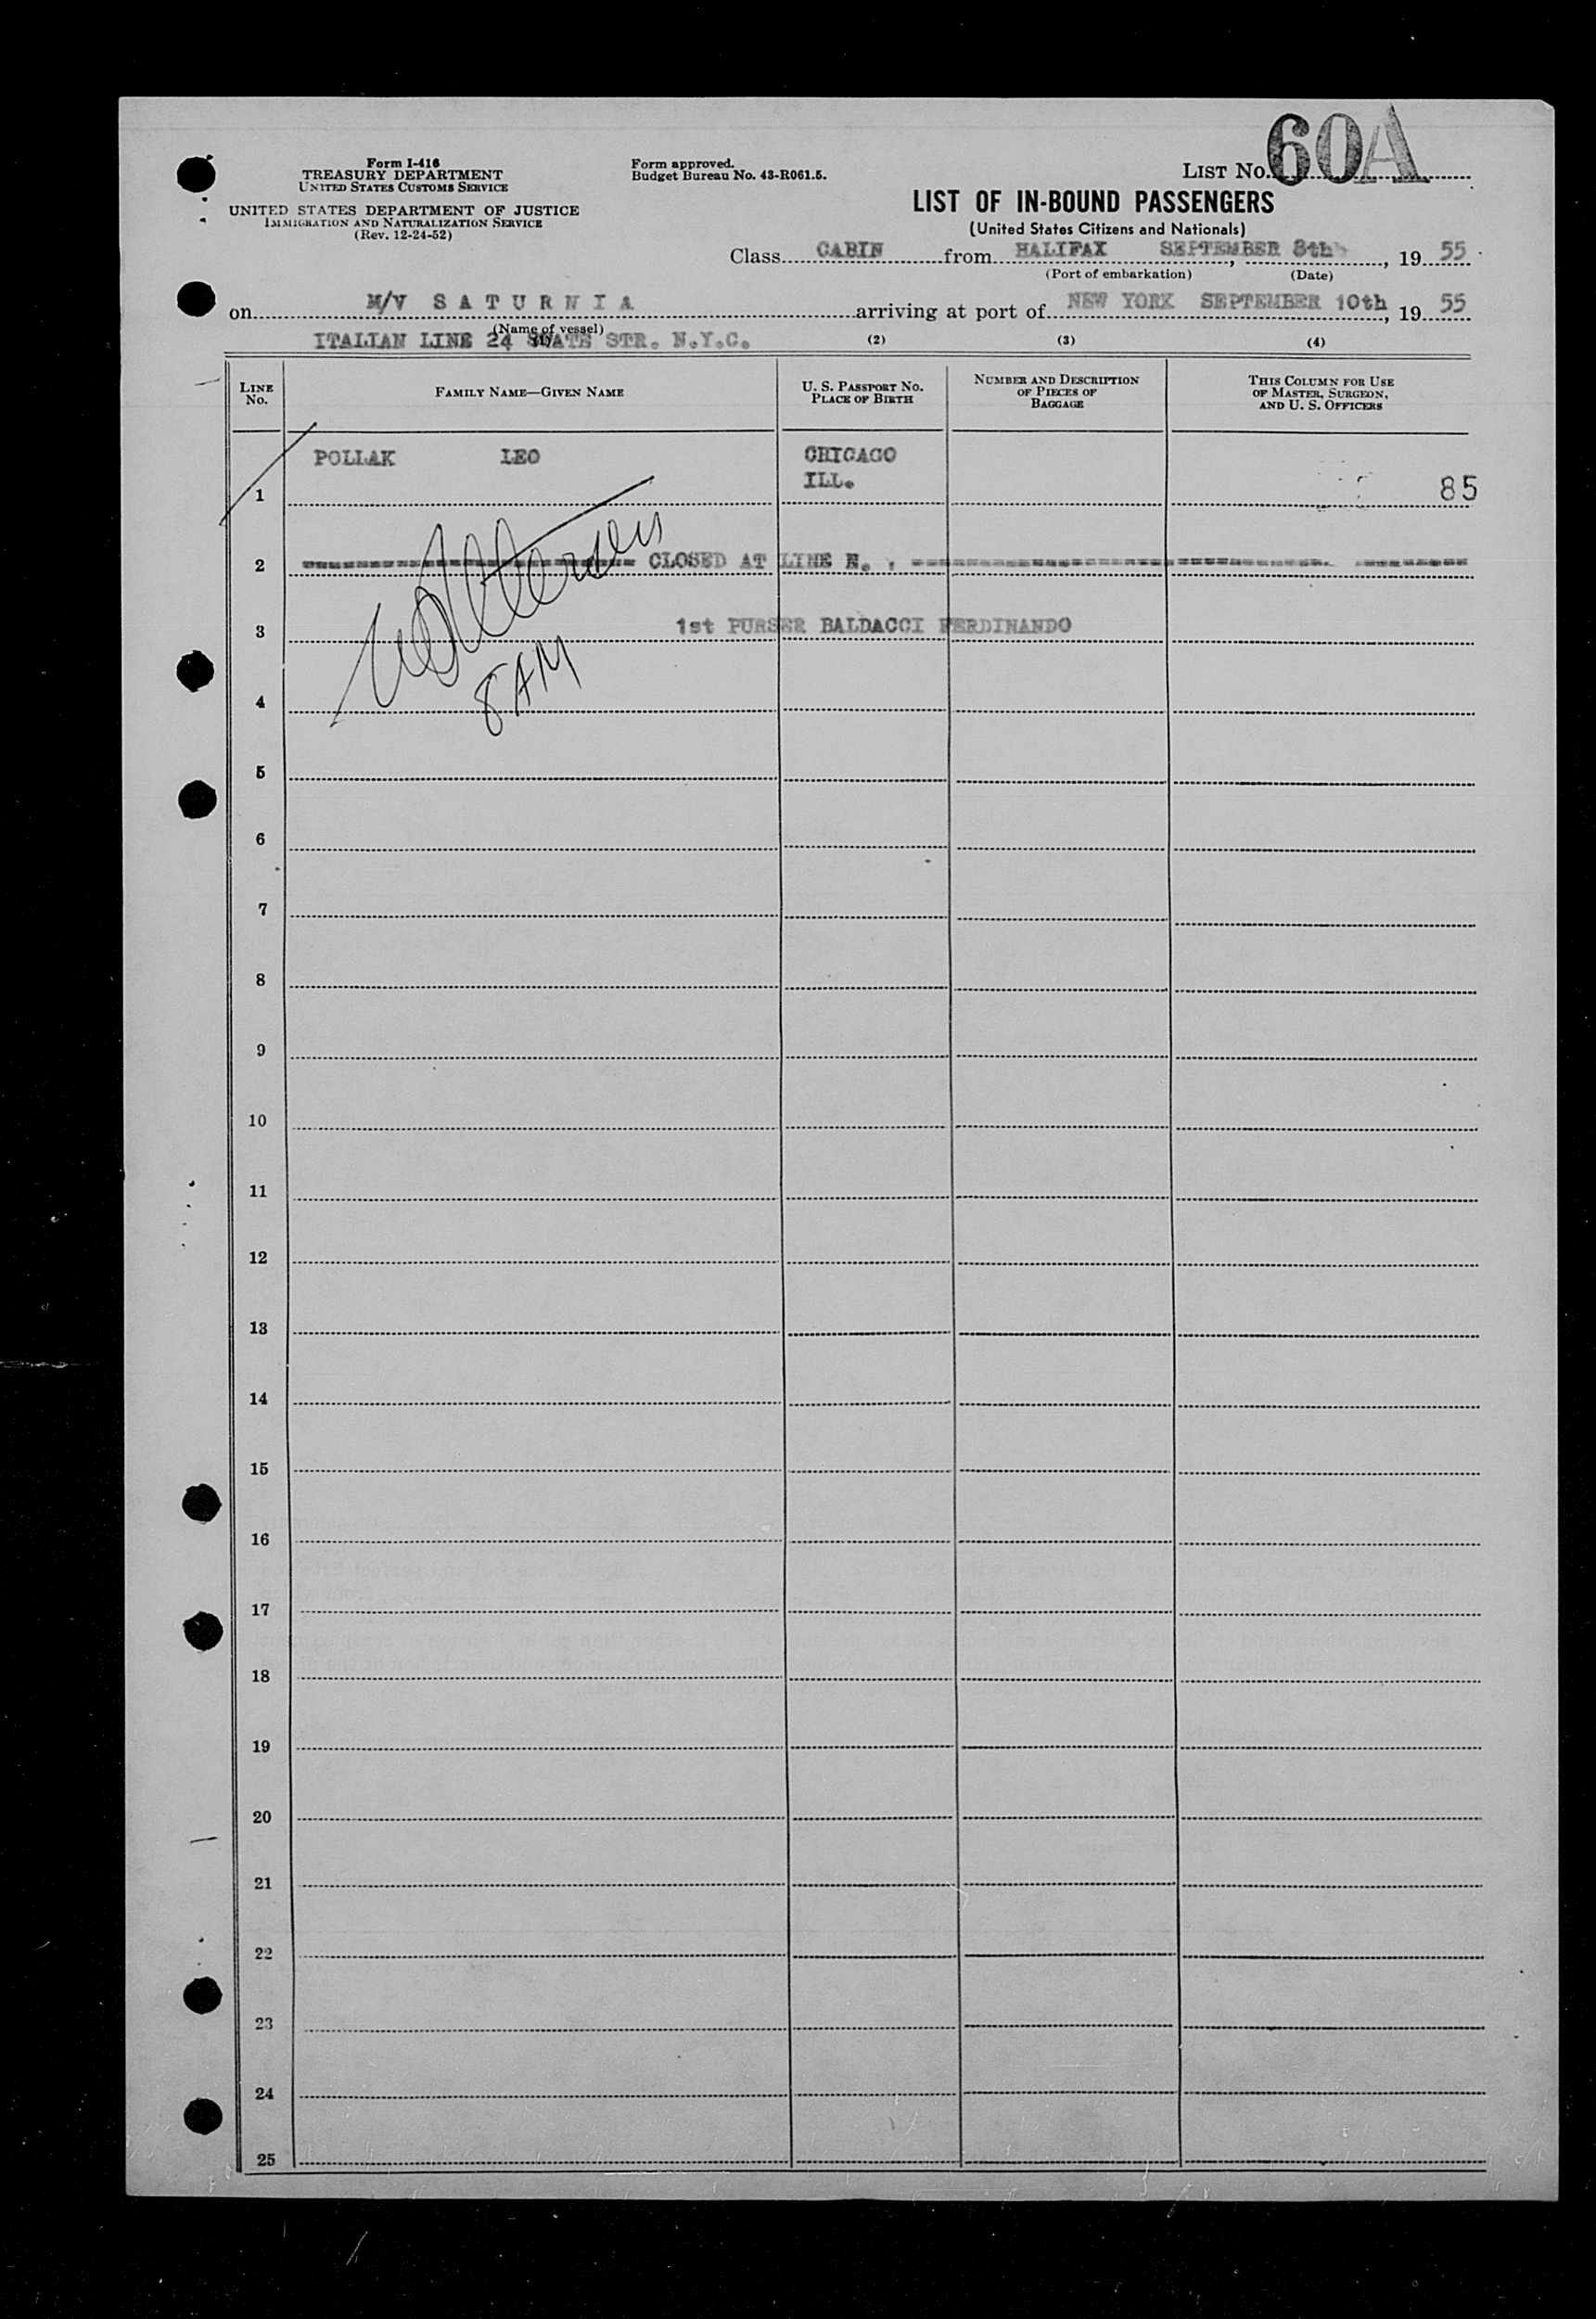 60A
Form I-416
TREASURY DEPARTMENT
UNITED STATES CUSTOMS SERVICE
UNITED STATES DEPARTMENT OF JUSTICE
IMMIGRATION AND NATURALIZATION SERVICE
(Rev. 12-24-52)
Form approved.
Budget Bureau No. 43-R061.5.
LIST No.
LIST OF IN-BOUND PASSENGERS
(United States Citizens and Nationals)
Class CABIN from HALIFAX SEPTEMBER 8th, 19 55
(Port of embarkation) (Date)
on M/V SATURNIA arriving at port of NEW YORK SEPTEMBER 10th, 19 55
(Name of vessel)
ITALIAN LINE 24 STATE STR. N.Y.C. (2) (3) (4)
LINE No. FAMILY NAME—GIVEN NAME U. S. PASSPORT No. PLACE OF BIRTH NUMBER AND DESCRIPTION OF PIECES OF BAGGAGE THIS COLUMN FOR USE OF MASTER, SURGEON, AND U. S. OFFICERS
POLLAK LEO CHICAGO
1 ILL. 85
2 CLOSED AT LINE N.
3 1st PURSER BALDACCI FERDINANDO
8 AM
4
5
6
7
8
9
10
11
12
13
14
15
16
17
18
19
20
21
22
23
24
25